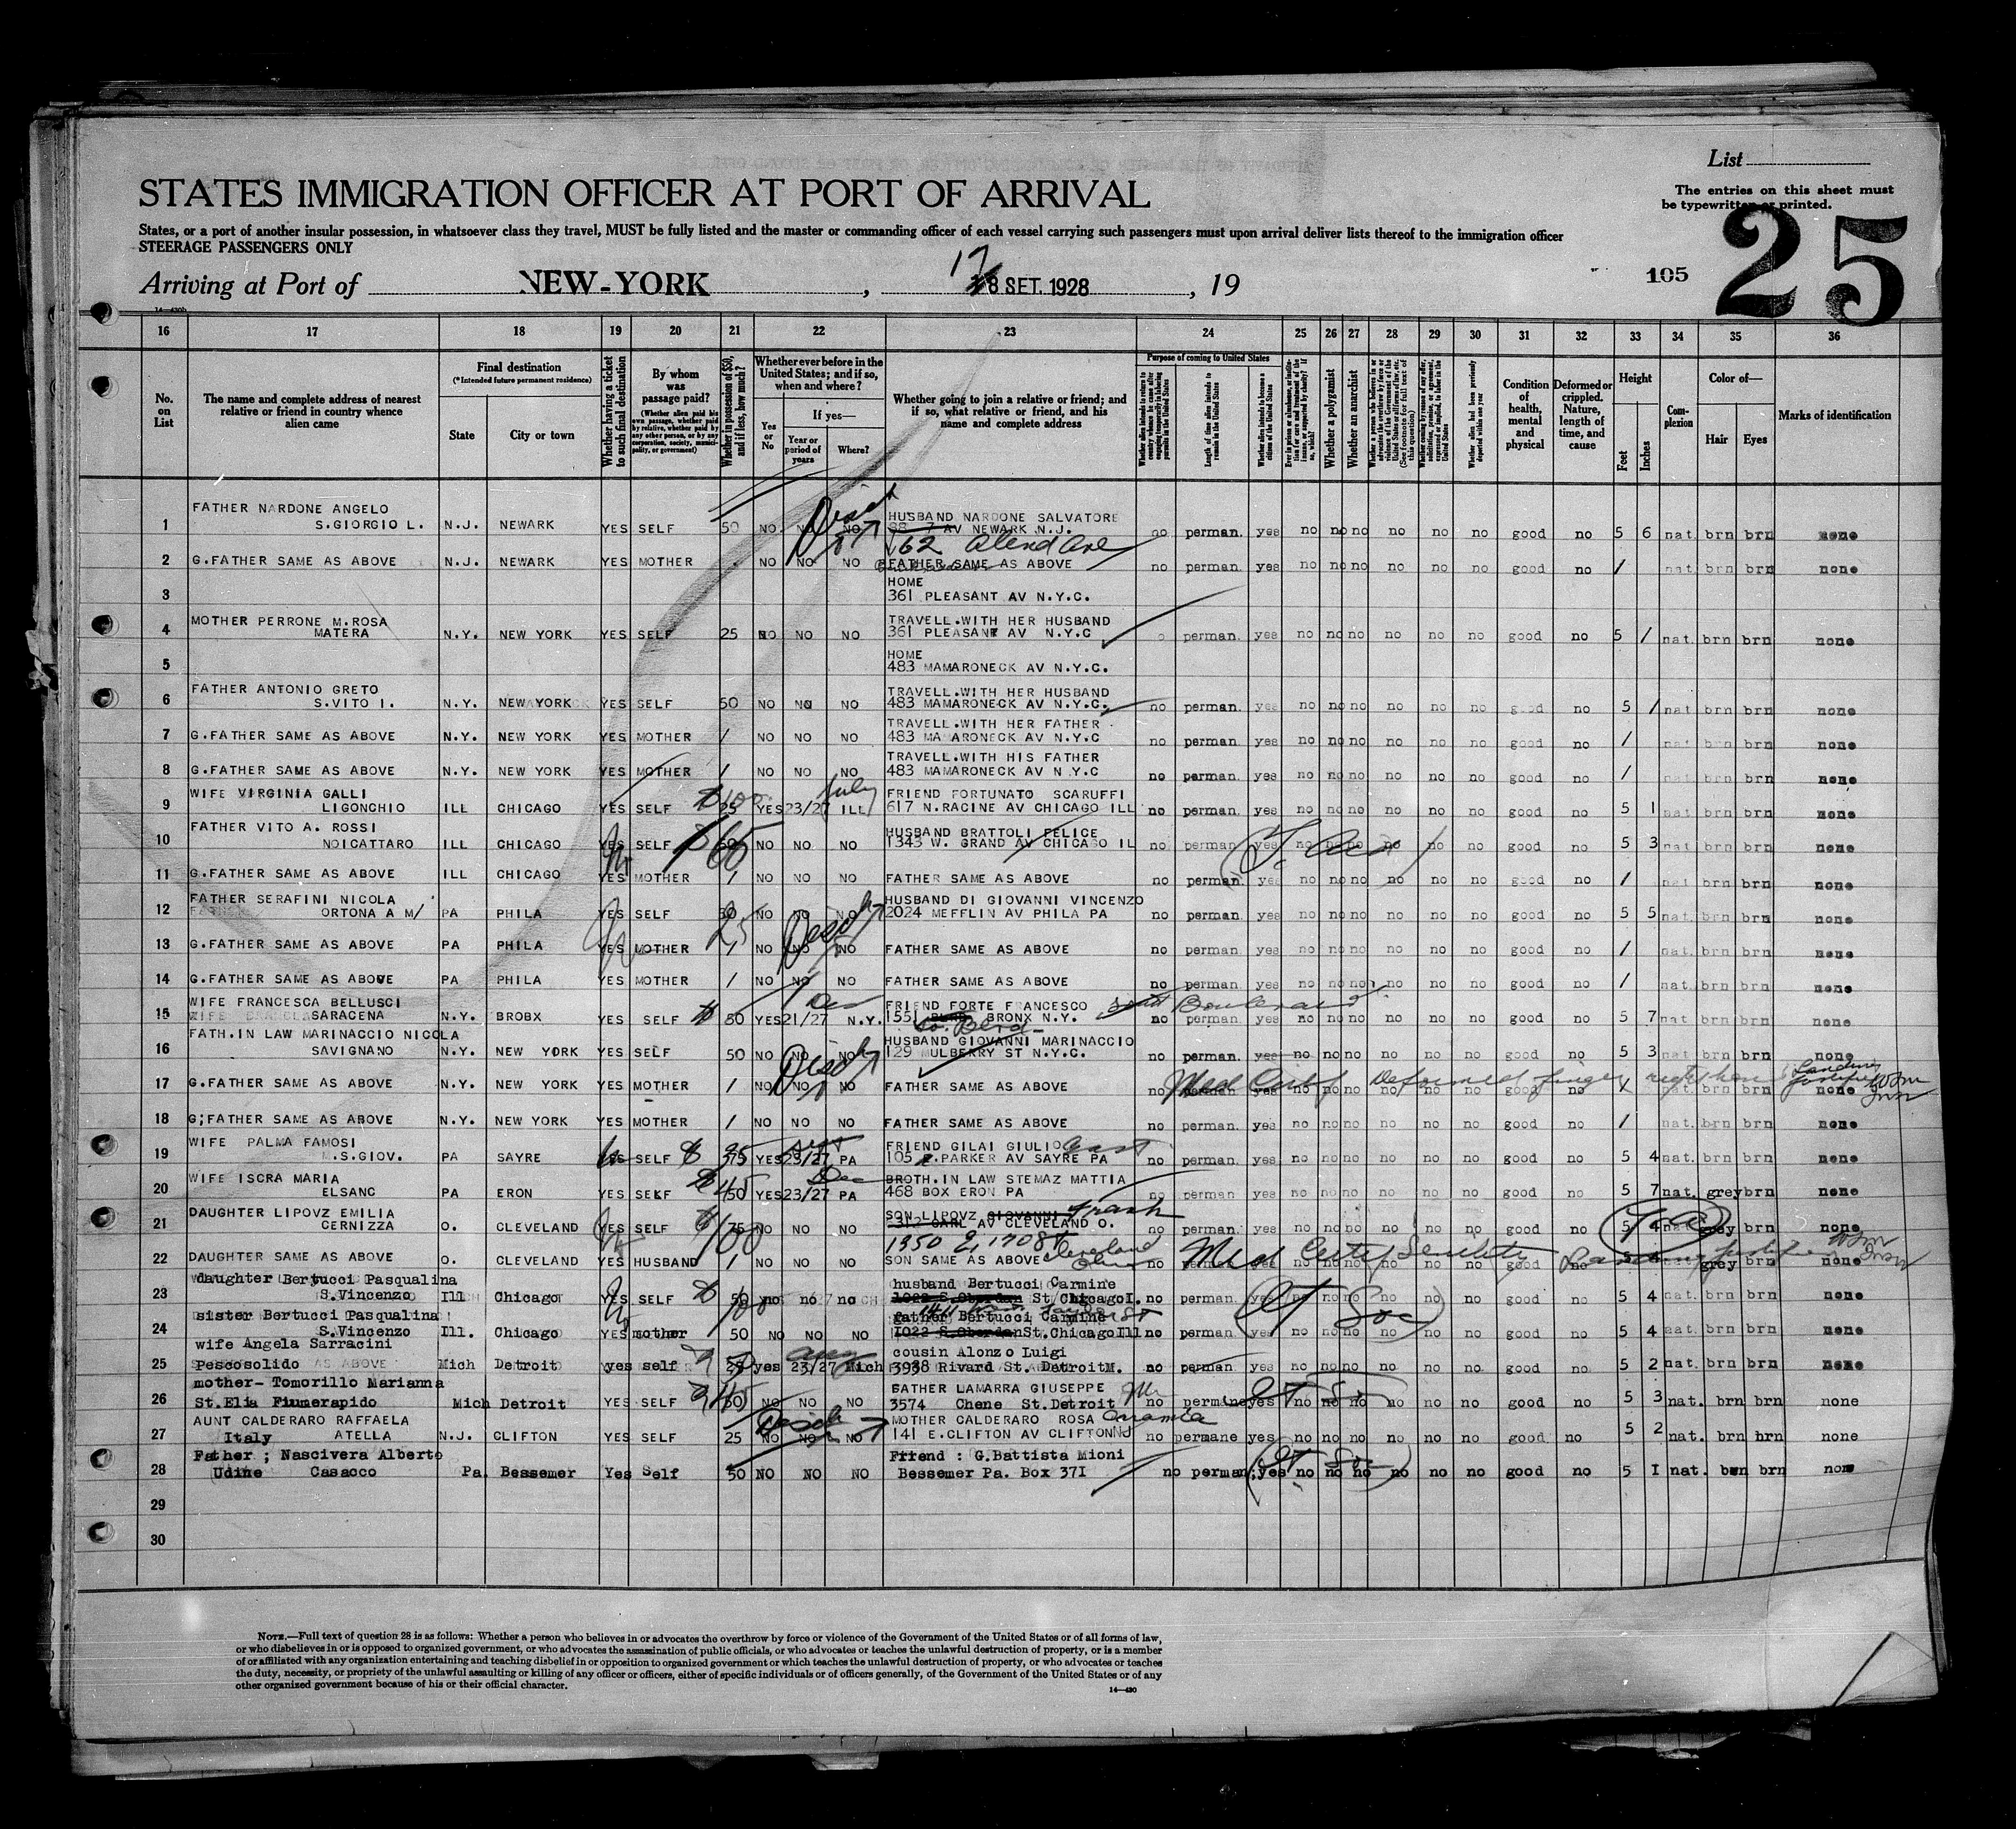 List
The entries on this sheet must
be typewritten or printed.
STATES IMMIGRATION OFFICER AT PORT OF ARRIVAL
25
States, or a port of another insular possession, in whatsoever class they travel, MUST be fully listed and the master or commanding officer of each vessel carrying such passengers must upon arrival deliver lists thereof to the immigration officer
STEERAGE PASSENGERS ONLY
Arriving at Port of NEW-YORK, 17 8 SET. 1928, 19
105
16 17 18 19 20 21 22 23 24 25 26 27 28 29 30 31 32 33 34 35 36
No. on List
The name and complete address of nearest relative or friend in country whence alien came
Final destination
(*Intended future permanent residence)
State
City or town
Whether having a ticket to such final destination
By whom was passage paid?
(Whether alien paid his own passage, whether paid by relative, whether paid by any other person, or by any corporation, society, municipality, or government)
Whether in possession of $50, and if less, how much?
Whether ever before in the United States; and if so, when and where?
Yes or No
If yes—
Year or period of years
Where?
Whether going to join a relative or friend; and if so, what relative or friend, and his name and complete address
Purpose of coming to United States
Length of time alien intends to remain in the United States
Whether alien intends to become a citizen of the United States
Whether a polygamist
Whether an anarchist
Whether alien had been previously deported within one year
Condition of health, mental and physical
Deformed or crippled. Nature, length of time, and cause
Height
Feet
Inches
Complexion
Color of—
Hair
Eyes
Marks of identification
1 FATHER NARDONE ANGELO S.GIORGIO L. N.J. NEWARK YES SELF 50 NO NO NO HUSBAND NARDONE SALVATORE AV NEWARK N.J. no perman. yes no no no no no no good no 5 6 nat. brn brn none
2 G.FATHER SAME AS ABOVE N.J. NEWARK YES MOTHER NO NO NO FATHER SAME AS ABOVE no perman. yes no no no no no no good no / nat. brn brn none
3 HOME 361 PLEASANT AV N.Y.C.
4 MOTHER PERRONE M.ROSA MATERA N.Y. NEW YORK YES SELF 25 NO NO NO TRAVELL.WITH HER HUSBAND 361 PLEASANT AV N.Y.C perman. yes no no no no no no good no 5 / nat. brn brn none
5 HOME 483 MAMARONECK AV N.Y.C.
6 FATHER ANTONIO GRETO S.VITO I. N.Y. NEW YORK YES SELF 50 NO NO NO TRAVELL.WITH HER HUSBAND 483 MAMARONECK AV N.Y.C. no perman. yes no no no no no no good no 5 / nat. brn brn none
7 G.FATHER SAME AS ABOVE N.Y. NEW YORK YES MOTHER / NO NO NO TRAVELL.WITH HER FATHER 483 MA ARONECK AV N.Y.C no perman. yes no no no no no no good no / nat. brn brn none
8 G.FATHER SAME AS ABOVE N.Y. NEW YORK YES MOTHER / NO NO NO TRAVELL.WITH HIS FATHER 483 MAMARONECK AV N.Y.C no perman. yes no no no no no no good no / nat. brn brn none
9 WIFE VIRGINIA GALLI LIGONCHIO ILL CHICAGO YES SELF $100 25 YES 23/27 July ILL FRIEND FORTUNATO SCARUFFI 617 N.RACINE AV CHICAGO ILL no perman. yes no no no no no no good no 5 1 nat. brn brn none
10 FATHER VITO A. ROSSI NOICATTARO ILL CHICAGO YES SELF $60 NO NO NO HUSBAND BRATTOLI FELICE 1343 W. GRAND AV CHICAGO IL no perman. yes no no no no no no good no 5 3 nat. brn brn none
11 G.FATHER SAME AS ABOVE ILL CHICAGO YES MOTHER / NO NO NO FATHER SAME AS ABOVE no perman. yes no no no no no no good no / nat. brn brn none
12 FATHER SERAFINI NICOLA ORTONA A M/ PA PHILA YES SELF 25 NO NO NO HUSBAND DI GIOVANNI VINCENZO 2024 MEFFLIN AV PHILA PA no perman. yes no no no no no no good no 5 5 nat. brn brn none
13 G.FATHER SAME AS ABOVE PA PHILA YES MOTHER / NO NO NO FATHER SAME AS ABOVE no perman. yes no no no no no no good no / nat. brn brn none
14 G.FATHER SAME AS ABOVE PA PHILA YES MOTHER / NO NO NO FATHER SAME AS ABOVE no perman. yes no no no no no no good no / nat. brn brn none
15 WIFE FRANCESCA BELLUSCI SARACENA N.Y. BROBX YES SELF $ 50 YES 21/27 Dec N.Y. FRIEND FORTE FRANCESCO 1551 So. Blvd BRONX N.Y. South Boulevard no perman. yes no no no no no no good no 5 7 nat brn brn none
16 FATH.IN LAW MARINACCIO NICOLA SAVIGNANO N.Y. NEW YORK YES SELF 50 NO NO NO HUSBAND GIOVANNI MARINACCIO 129 MULBERRY ST N.Y.C. no perman. yes no no no no no no good no 5 3 nat. brn brn none
17 G.FATHER SAME AS ABOVE N.Y. NEW YORK YES MOTHER / NO NO NO FATHER SAME AS ABOVE no perman yes no no no no no no good no / nat. brn brn none
Med Certf Deformed finger right hand
18 G;FATHER SAME AS ABOVE N.Y. NEW YORK YES MOTHER / NO NO NO FATHER SAME AS ABOVE no perman. yes no no no no no no good no / nat. brn brn none
19 WIFE PALMA FAMOSI M.S.GIOV. PA SAYRE YES SELF $ 35 YES 23/27 PA FRIEND GILAI GIULIO 105 PARKER AV SAYRE PA no perman. yes no no no no no no good no 5 4 nat. brn brn none
20 WIFE ISCRA MARIA ELSANC PA ERON YES SELF $45 50 YES 23/27 Dec PA BROTH.IN LAW STEMAZ MATTIA 468 BOX ERON PA no perman yes no no no no no no good no 5 7 nat. grey brn none
21 DAUGHTER LIPOVZ EMILIA CERNIZZA O. CLEVELAND YES SELF $100 75 NO NO NO SON LIPOVZ GIOVANNI Frank 1312 CARL AV CLEVELAND O. no perman. yes no no no no no no good no 5 4 nat grey brn none
22 DAUGHTER SAME AS ABOVE O. CLEVELAND YES HUSBAND / NO NO NO SON SAME AS ABOVE Cleveland Ohio no perman yes no no no no no no good no grey brn none
Med Certf Senility
23 daughter Bertucci Pasqualina S.Vincenzo Ill Chicago YES SELF $100 50 no no no husband Bertucci Carmine St Chicago I. no perman. yes no no no no no no good no 5 4 nat. brn brn none
24 sister Bertucci Pasqualina S.Vincenzo Ill. Chicago YES mother 50 NO NO NO father Bertucci Carmine 1022 S.Oberdan St.Chicago Ill no perman yes no no no no no no good no 5 4 nat. brn brn none
25 wife Angela Sarracini Pescosolido Mich Detroit yes self 25 yes 23/27 Aug Mich cousin Alonzo Luigi 3938 Rivard St. Detroit M. no perman yes no no no no no no good no 5 2 nat. brn brn none
26 mother- Tomorillo Marianna St.Elia Fiumerapido Mich Detroit YES SELF 50 NO NO NO FATHER LAMARRA GIUSEPPE 3574 Chene St.Detroit no permane yes no no no no no no good no 5 3 nat. brn brn none
27 AUNT CALDERARO RAFFAELA Italy ATELLA N.J. CLIFTON YES SELF 25 NO NO NO MOTHER CALDERARO ROSA 141 E.CLIFTON AV CLIFTON NJ no permane yes no no no no no no good no 5 2 nat. brn brn none
28 Father ; Nascivera Alberto Udine Casacco Pa. Bessemer Yes Self 50 NO NO NO Friend : G.Battista Mioni Bessemer Pa. Box 37I no perman; yes no no no no no no good no 5 I nat. brn brn none
29
30
NOTE.—Full text of question 28 is as follows: Whether a person who believes in or advocates the overthrow by force or violence of the Government of the United States or of all forms of law,
or who disbelieves in or is opposed to organized government, or who advocates the assassination of public officials, or who advocates or teaches the unlawful destruction of property, or is a member
of or affiliated with any organization entertaining and teaching disbelief in or opposition to organized government or which teaches the unlawful destruction of property, or who advocates or teaches
the duty, necessity, or propriety of the unlawful assaulting or killing of any officer or officers, either of specific individuals or of officers generally, of the Government of the United States or of any
other organized government because of his or their official character.
14—430